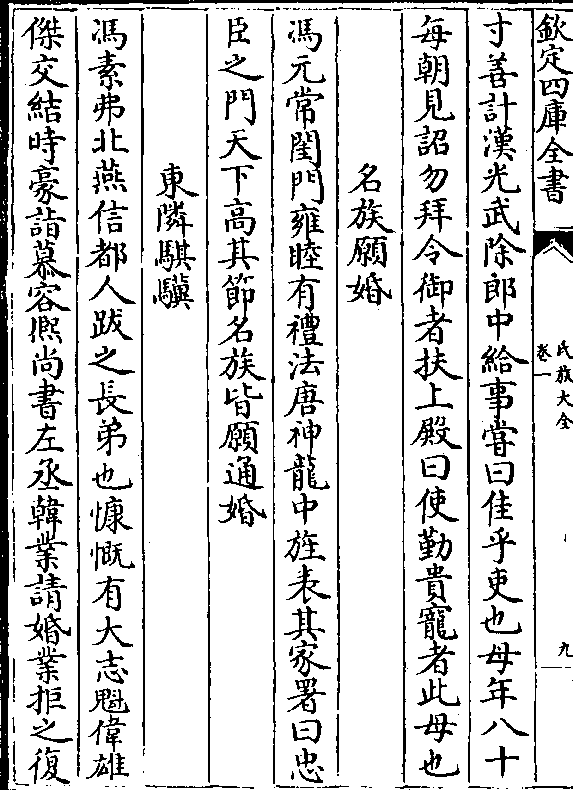 欽定四庫全書
氏族大全
卷一
九
寸善計漢光武除郎中給事嘗曰佳乎吏也母年八十
每朝見詔勿拜令御者扶上殿曰使勤貴寵者此母也
名族願婚
馮元常閨門雍睦有禮法唐神龍中旌表其家署曰忠
臣之門天下高其節名族皆願通婚
東隣騏驥
馮素弗北燕信都人跋之長弟也慷慨有大志魁偉雄
傑交結時豪詣慕容熈尚書左丞韓業請婚業拒之復